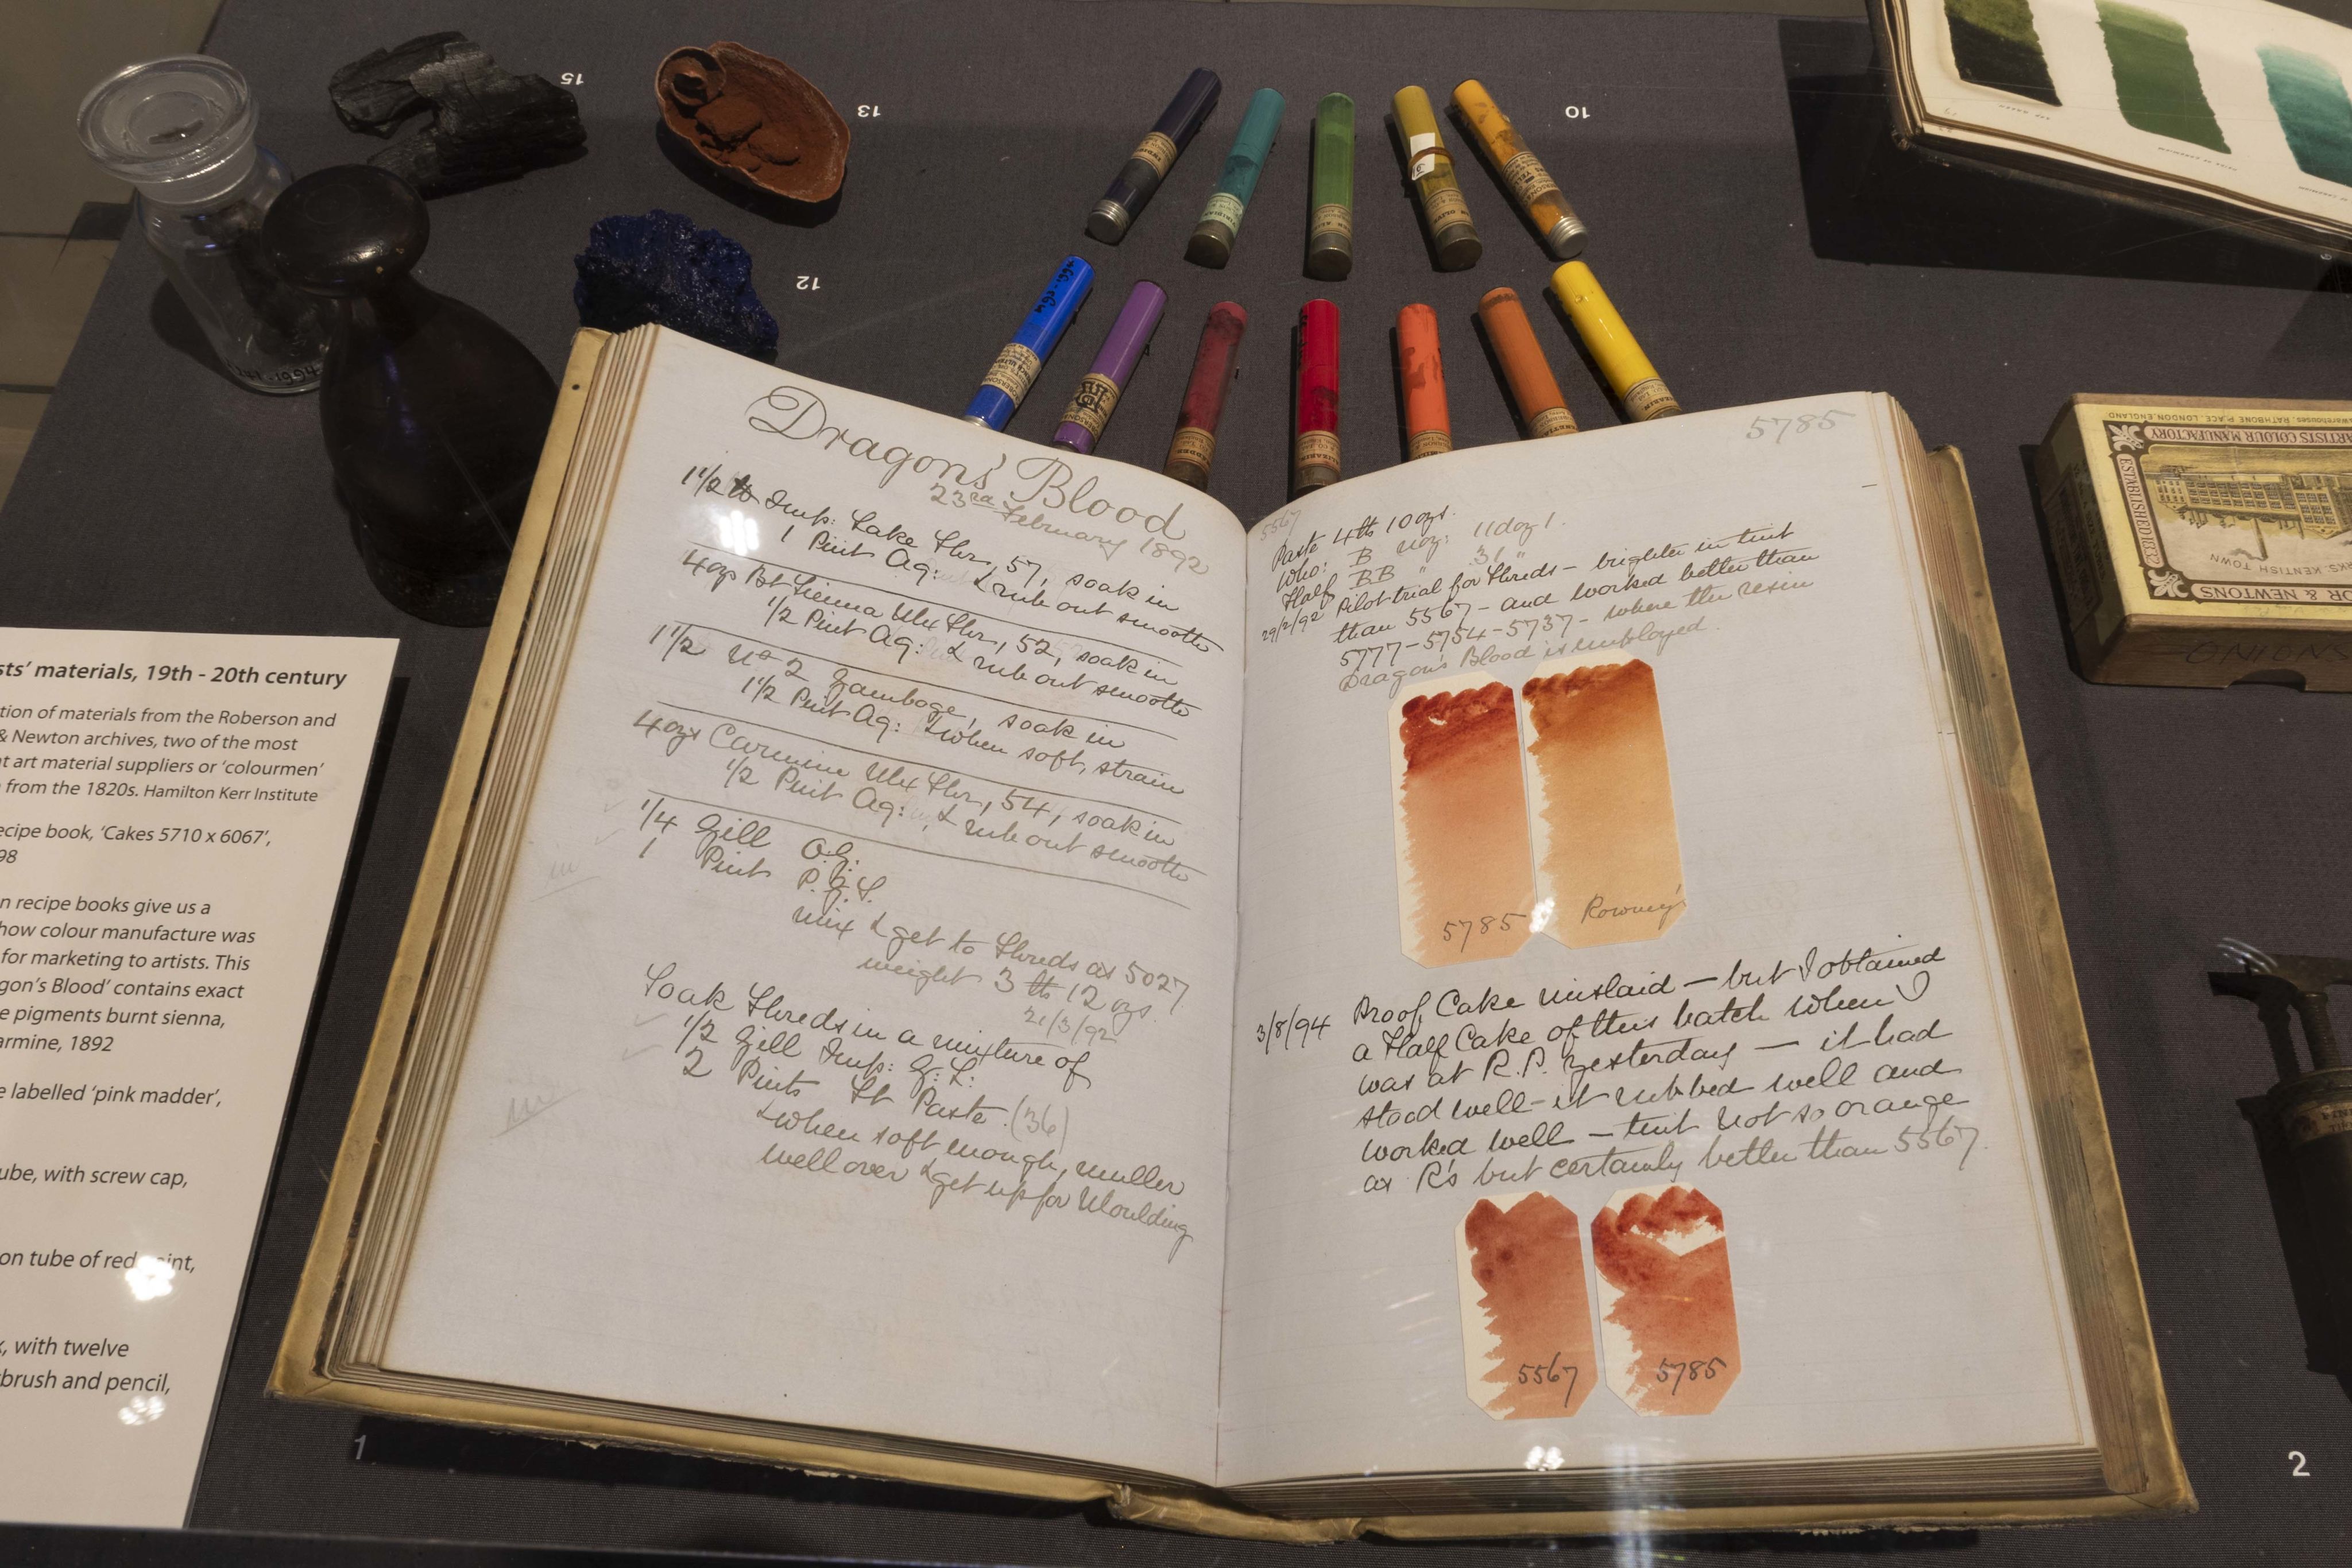 Dragons' Blood
23rd February 1892
1 1/2 lb Imp: Lake Thr, 57, soak in
1 Pint Aq: & rub out smooth
4 ozs Bt Sienna Ulx Thr, 52, soak in
1/2 Pint Aq: & rub out smooth
1 1/2 No 2 Gamboge, soak in
1 1/2 Pint Aq: & when soft, strain
4 ozs Carmine Ulx Thr, 54, soak in
1/2 Pint Aq: & rub out smooth
1/4 Gill O.G.
1 Pint P.G.S.
mix & get to Shreds as 5027
weight 3 lb 12 ozs.
21/3/92
Soak Shreds in a mixture of
1/2 Gill Imp: G: L:
2 Pints St Paste (36)
& when soft enough, muller
well over & get up for Moulding
5785
5567
Paste 4 lb 10 ozs.
Who: B 11 doz 1.
Half BB " 31 "
29/2/92 Pilot trial for Shreds - brighter in tint
than 5567 - and worked better than
5777-5754-5737- where the resin
Dragon's Blood is employed.
5785
Rowney's
3/8/94 Proof Cake mislaid - but I obtained
a Half Cake of this batch when I
was at R.P. yesterday - it had
stood well - it rubbed well and
worked well - tint not so orange
as R's but certainly better than 5567.
5567
5785
15
13
12
10
1
2
sts' materials, 19th - 20th century
tion of materials from the Roberson and
& Newton archives, two of the most
nt art material suppliers or 'colourmen'
from the 1820s. Hamilton Kerr Institute
ecipe book, 'Cakes 5710 x 6067',
98
n recipe books give us a
how colour manufacture was
for marketing to artists. This
gon's Blood' contains exact
e pigments burnt sienna,
armine, 1892
e labelled 'pink madder',
ube, with screw cap,
on tube of red paint,
k, with twelve
brush and pencil,
RATHBONE PLACE, LONDON, ENGLAND
ARTISTS COLOUR MANUFACTORY
ESTABLISHED 1832
KENTISH TOWN
OR & NEWTONS